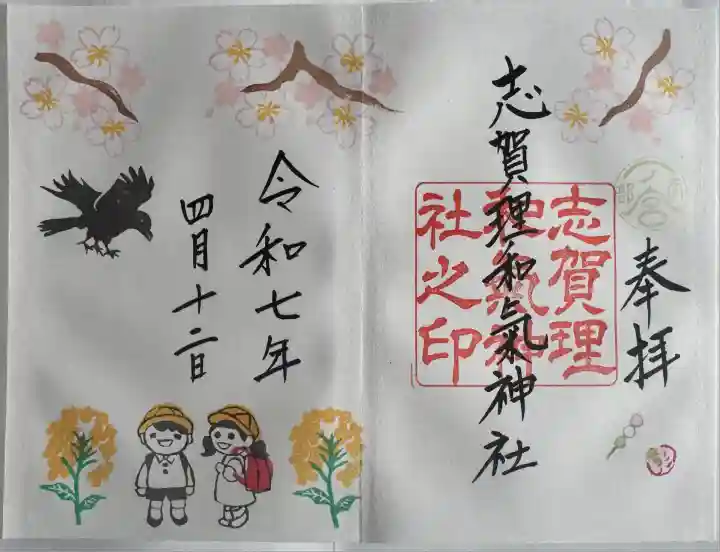 奉拝
志賀理和氣神社
志賀理
和氣神
社之印
令和七年
四月十二日